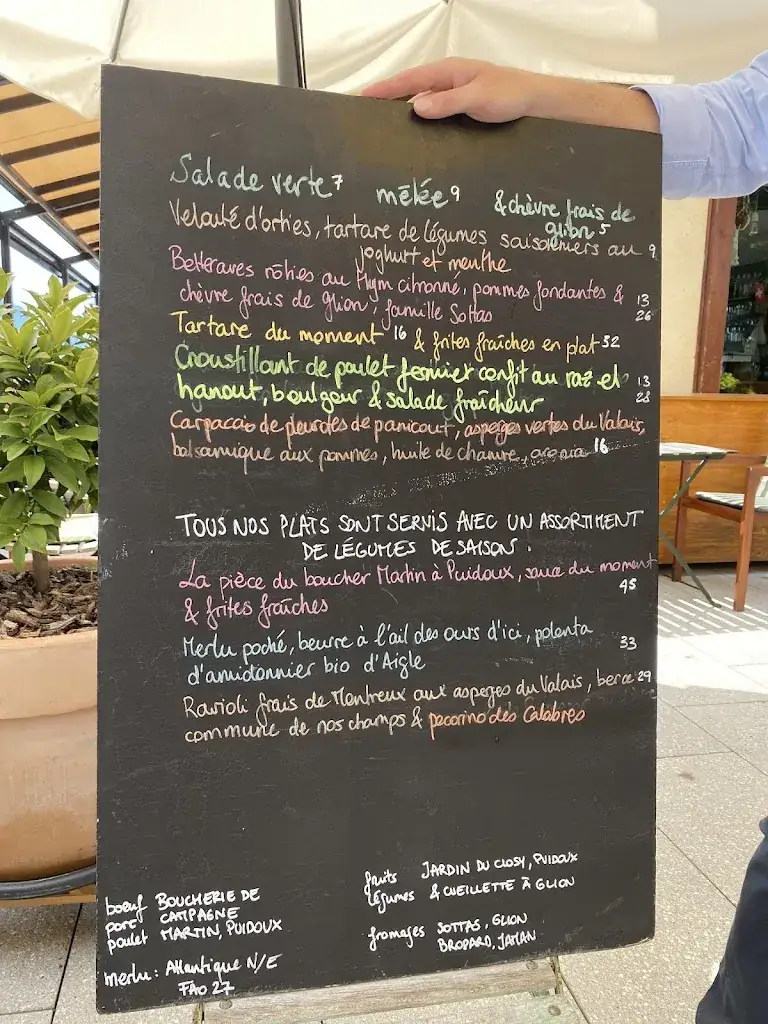 Salade verte 7 mêlée 9 & chèvre frais de
glion 5
Velouté d'orties, tartare de légumes saisonniers au 9
joghurt et menthe
Betteraves rôties au thym citronné, pommes fondantes & 13
chèvre frais de Glion, famille Sottas 26
Tartare du moment 16 & frites fraîches en plat 32
Croustillant de poulet fermier confit au raz-el 13
hanout, boulgour & salade fraîcheur 28
Carpaccio de pleurotes de panicaut, asperges vertes du Valais,
balsamique aux pommes, huile de chanvre, aronia 16
TOUS NOS PLATS SONT SERVIS AVEC UN ASSORTIMENT
DE LÉGUMES DE SAISON.
La pièce du boucher Martin à Puidoux, sauce du moment
& frites fraîches 45
Merlu poché, beurre à l'ail des ours d'ici, polenta 33
d'amidonnier bio d'Aigle
Ravioli frais de Montreux aux asperges du Valais, berce 29
commune de nos champs & pecorino des Calabres
boeuf BOUCHERIE DE
porc CAMPAGNE
poulet MARTIN, PUIDOUX
merlu: Atlantique N/E
FAO 27
fruits JARDIN DU CLOSY, PUIDOUX
légumes & CUEILLETTE À GLION
fromages SOTTAS, GLION
BROPARD, JAMAN